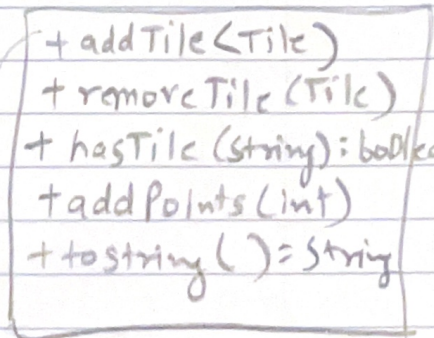 + addTile(Tile)
+ removeTile(Tile)
+ hasTile(String): boole
+ addPoints(int)
+ tostring() = String